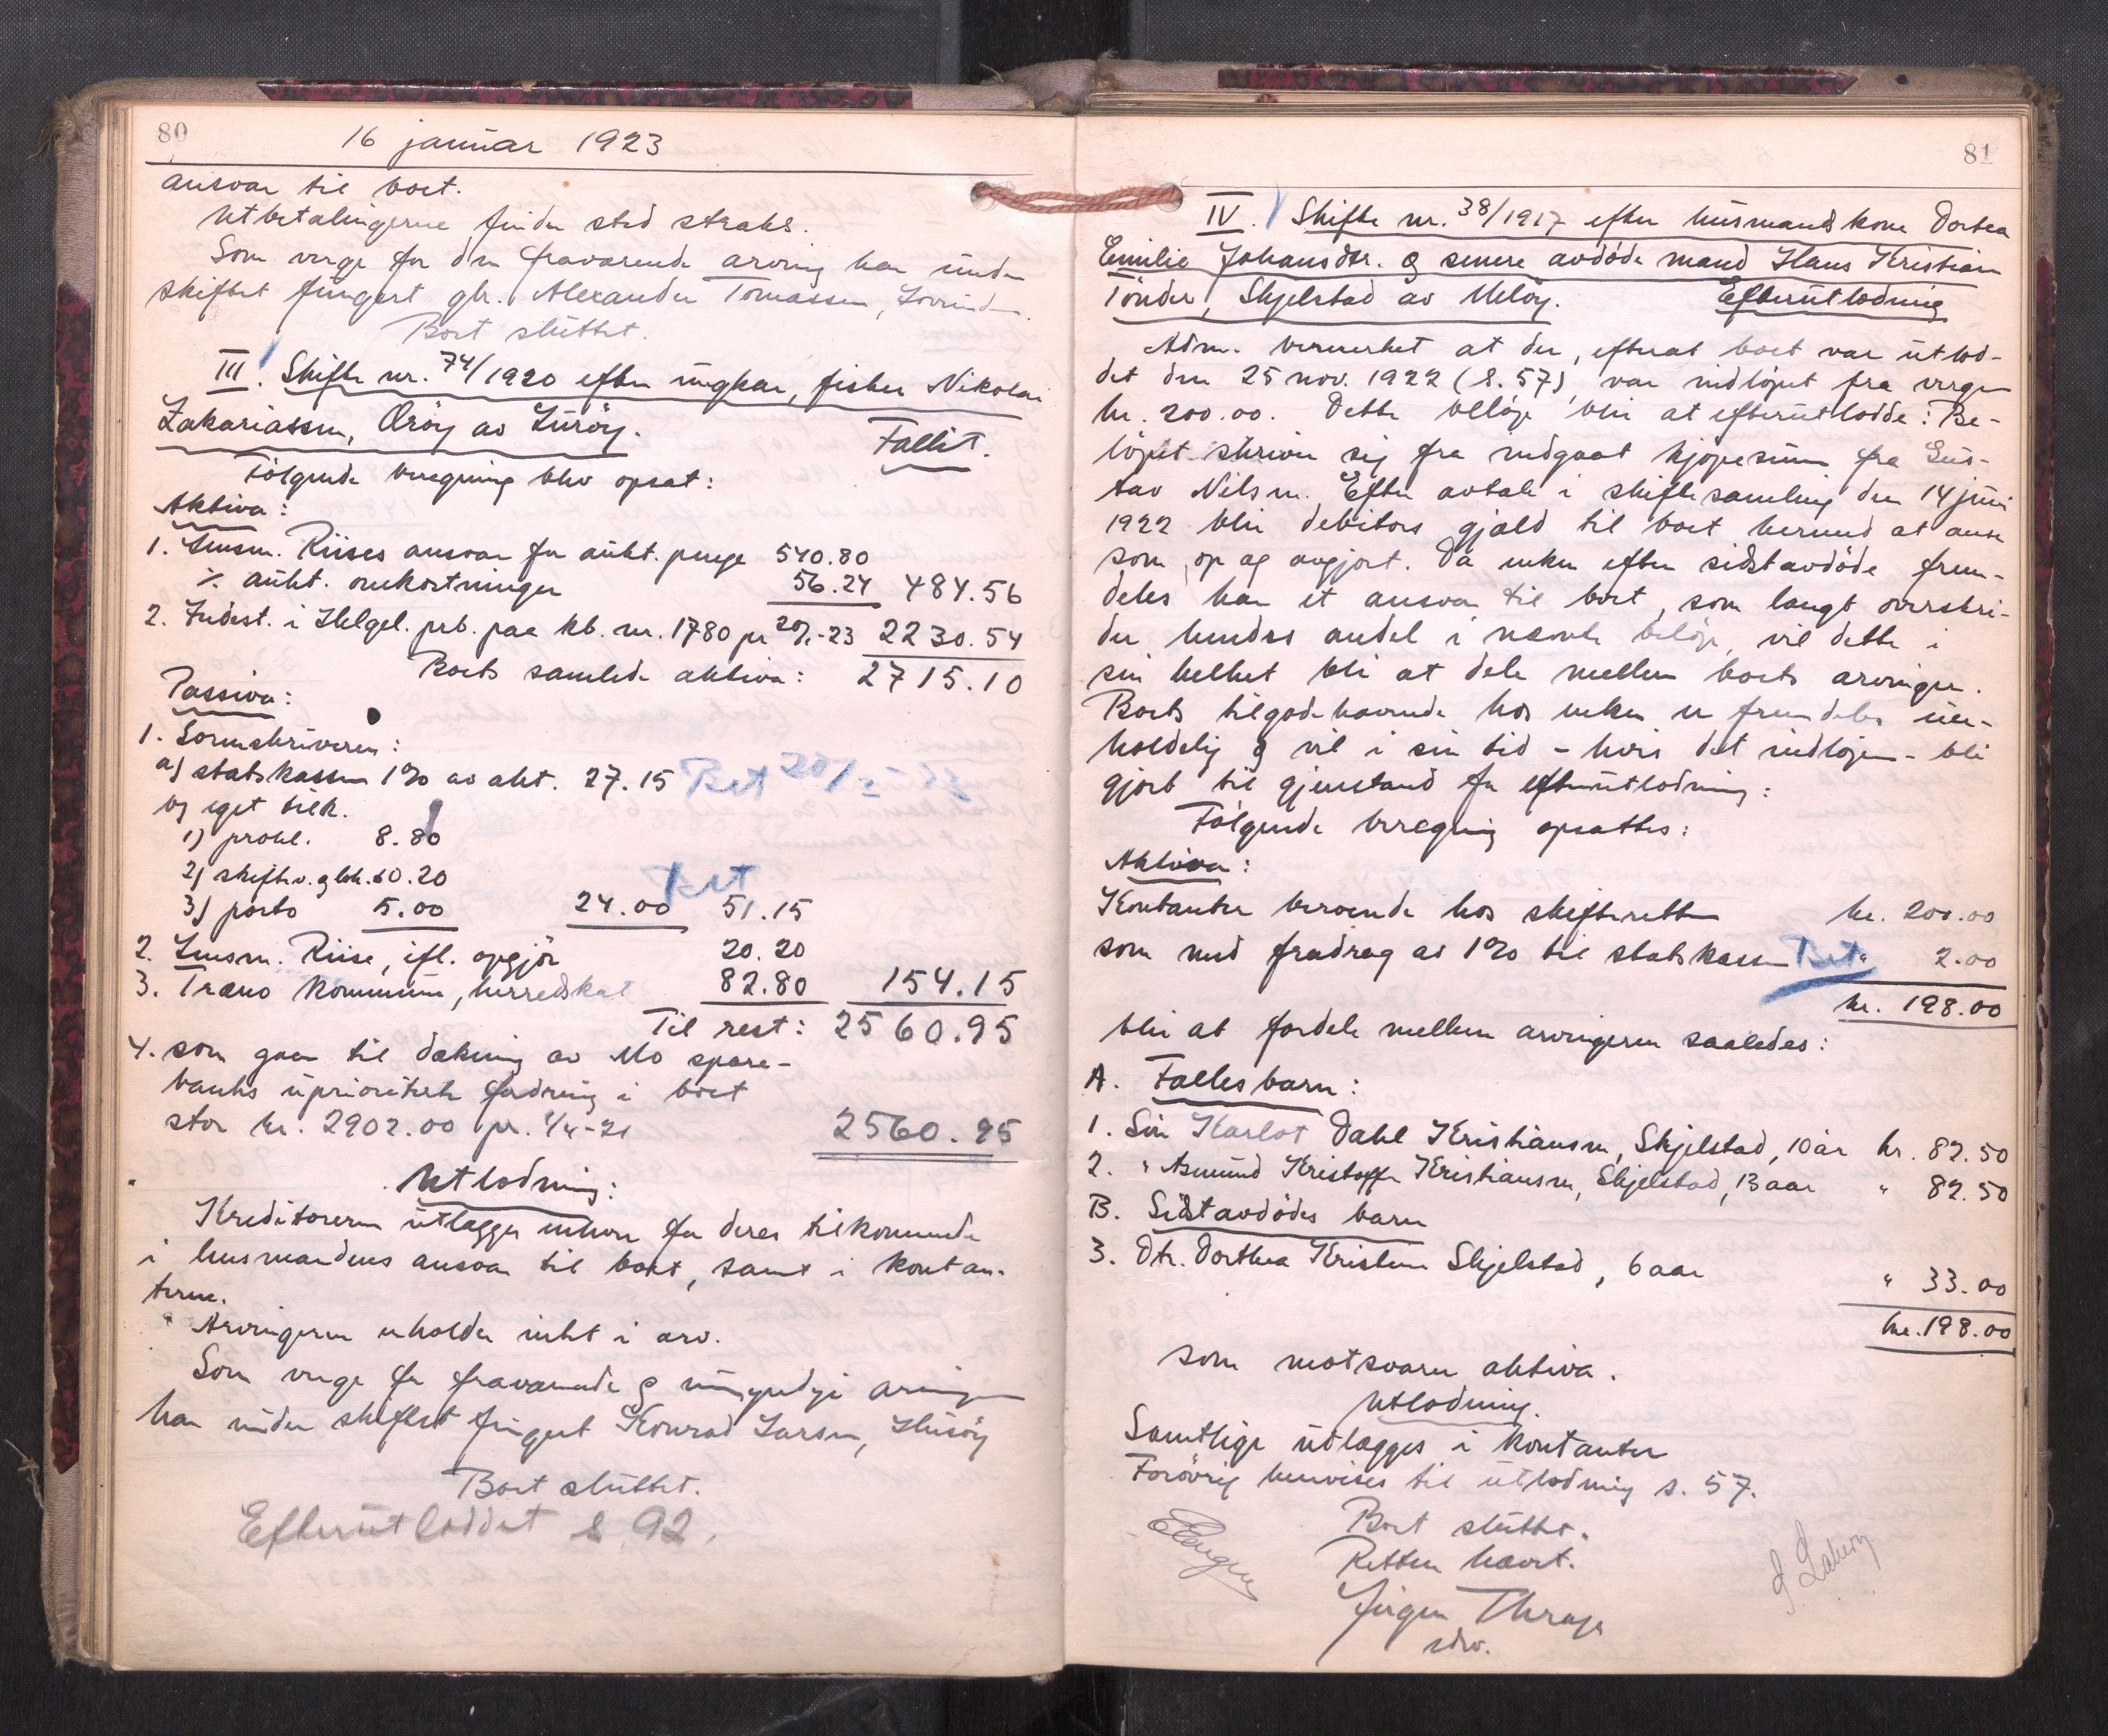 80
16 januar 1923
ansvar til boet.
Utbetalingerne finder sted straks.
Som verge for den fraværende arving har under
skiftet fungert gbr. Alexander Tomassen, Lovunden.
Boet sluttet.
III. Skifte nr. 74/1920 efter ungkar, fisker Nikolai
Zakariassen, Orøy av Lurøy.
Fallit.
Følgende beregning blev opsat:
Aktiva:
1. Lensm. Riises ansvar for aukt. penge 540.80
÷ aukt. omkostninger 56.24 484.56
2. Indest. i Helgel. prb. paa kb. nr. 1780 pr 20/1-23 2230.54
Boets samlede aktiva: 2715.10
Passiva:
1. Sorenskriveren:
a) statskassen 1% av akt. 27.15 Bet 20/1
b) eget tilk.
1) prokl. 8.80
2) skiftev. og bek. 10.20
Bet
3) porto 5.00 24.00 51.15
2. Lensm. Riise, ifl. opgjør 20.20
3. Træno kommune, herredskat 82.80 154.15
Til rest: 2560.95
4. som gaar til dækning av Mo spare-
banks uprioriterte fordring i boet
stor kr. 2902.00 pr. 1/4-21 2560.95
Utlodning:
Kreditorerne utlægges enhver for deres tilkommende
i lensmandens ansvar til boet, samt i kontan-
terne.
Arvingerne erholder intet i arv.
Som verge for fraværende og umyndige arvinger
har under skiftet fungert Konrad Larsen, Husøy
Boet sluttet.
Efterutloddet s 92.
81
IV. Skifte nr. 38/1917 efter husmandskone Dortea
Emilie Johansdtr. og senere avdøde mand Hans Kristian
Tønder, Skjelstad av Meløy. Efterutlodning
Adm. bemerket at der, efterat boet var utlod-
det den 25 nov. 1922 (s. 57), var indløpet fra vergen
kr. 200.00. Dette beløp blir at efterutlodde: Be-
løpet skriver sig fra indgaat kjøpesum fra Gus-
tav Nilsen. Efter avtale i skiftesamling den 14 juni
1922 blir debitors gjæld til boet hermed at anse
som op og avgjort. Da enken efter sidstavdøde frem-
deles har et ansvar til boet, som langt overskri-
der hendes andel i nævnte beløp, vil dette i
sin helhet bli at dele mellem boets arvinger.
Boets tilgodehavende hos enken er fremdeles uer-
holdelig og vil i sin tid - hvis det indløper - bli
gjort til gjenstand for efterutlodning:
Følgende beregning opsattes:
Aktiva:
Kontanter beroende hos skifteretten kr. 200.00
som med fradrag av 1% til statskassen Bet " 2.00
kr. 198.00
blir at fordele mellem arvingerne saaledes:
A. Fælles barn:
1. Søn Karlot Dahl Kristiansen, Skjelstad, 10 år kr. 82.50
2. " Asmund Kristoffer Kristiansen, Skjelstad, 13 aar " 82.50
B. Sidstavdødes barn
3. Dtr. Dorthea Kristine Skjelstad, 6 aar " 33.00
kr. 198.00
som motsvarer aktiva.
Utlodning.
Samtlige utlægges i kontanter
Forøvrig henvises til utlodning s. 57.
Boet sluttet.
Retten hævet.
Jürgen Thrap